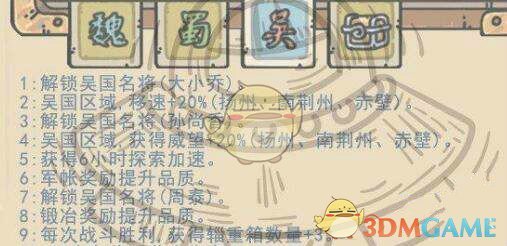 魏 蜀 吴
1:解锁吴国名将(大小乔)。
2:吴国区域,移速+20%(扬州、南荆州、赤壁)。
3:解锁吴国名将(孙尚香)。
4:吴国区域,获得威望+20%(扬州、南荆州、赤壁)。
5:获得6小时探索加速。
6:军帐奖励提升品质。
7:解锁吴国名将(周泰)。
8:锻冶奖励提升品质。
9:每次战斗胜利,获得辎重箱数量+3。
3DMGAME